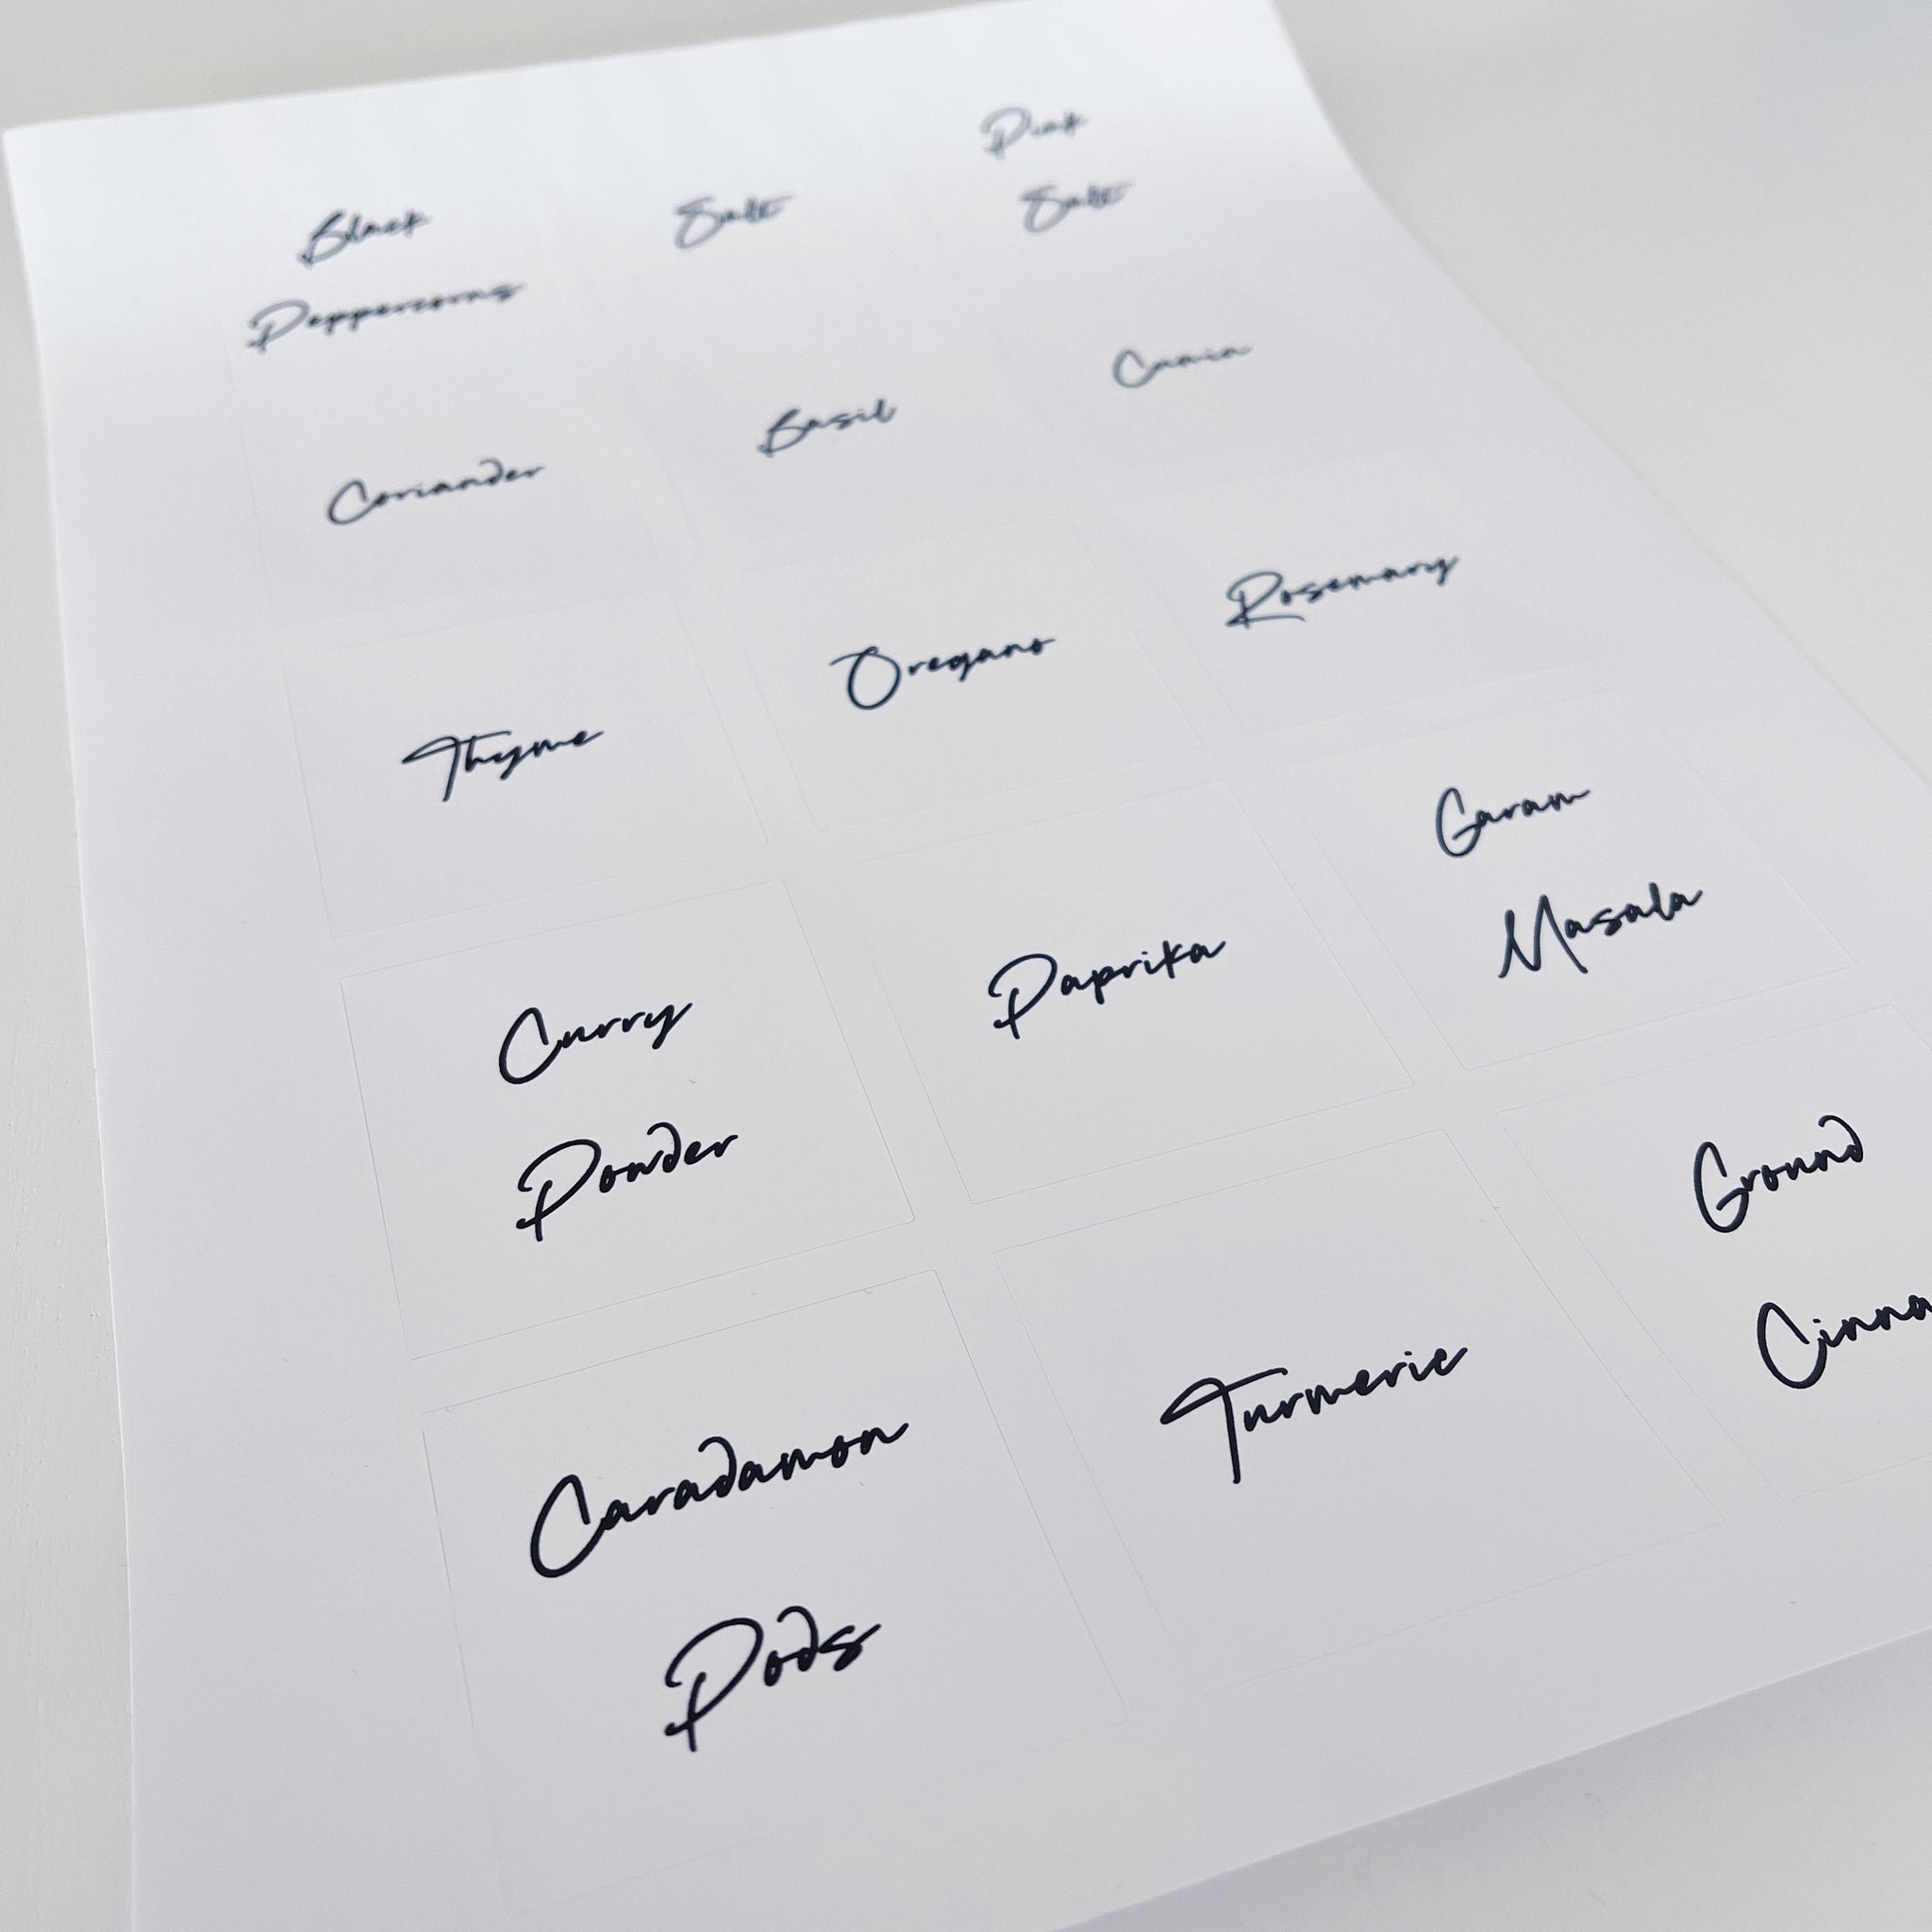 Black
Peppercorns
Salt
Pink
Salt
Coriander
Basil
Cumin
Thyme
Oregano
Rosemary
Curry
Powder
Paprika
Garam
Masala
Caradamon
Pods
Turmeric
Ground
Cinna